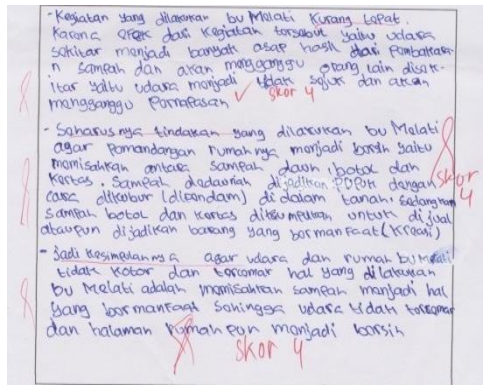 - Kegiatan yang dilakukan bu Melati kurang tepat.
Karena efek dari kegiatan tersebut yaitu udara
sekitar menjadi banyak asap hasil dari pembakara-
n sampah dan akan mengganggu orang lain disek-
itar yaitu udara menjadi tidak sejuk dan akan
mengganggu pernapasan
skor 4
- Seharusnya tindakan yang dilakukan bu Melati
agar pemandangan rumahnya menjadi bersih yaitu
memisahkan antara sampah daun, botol dan
kertas. Sampah dedaunan dijadikan pupuk dengan
skor 4
cara dikubur (dipendam) di dalam tanah. Sedangkan
sampah botol dan kertas dikumpulkan untuk di jual
ataupun dijadikan barang yang bermanfaat (kreasi)
- Jadi kesimpulannya agar udara dan rumah bu Melati
tidak kotor dan tercemar hal yang dilakukan
bu Melati adalah memisahkan sampah menjadi hal
yang bermanfaat sehingga udara tidak tercemar
dan halaman rumah pun menjadi bersih
skor 4